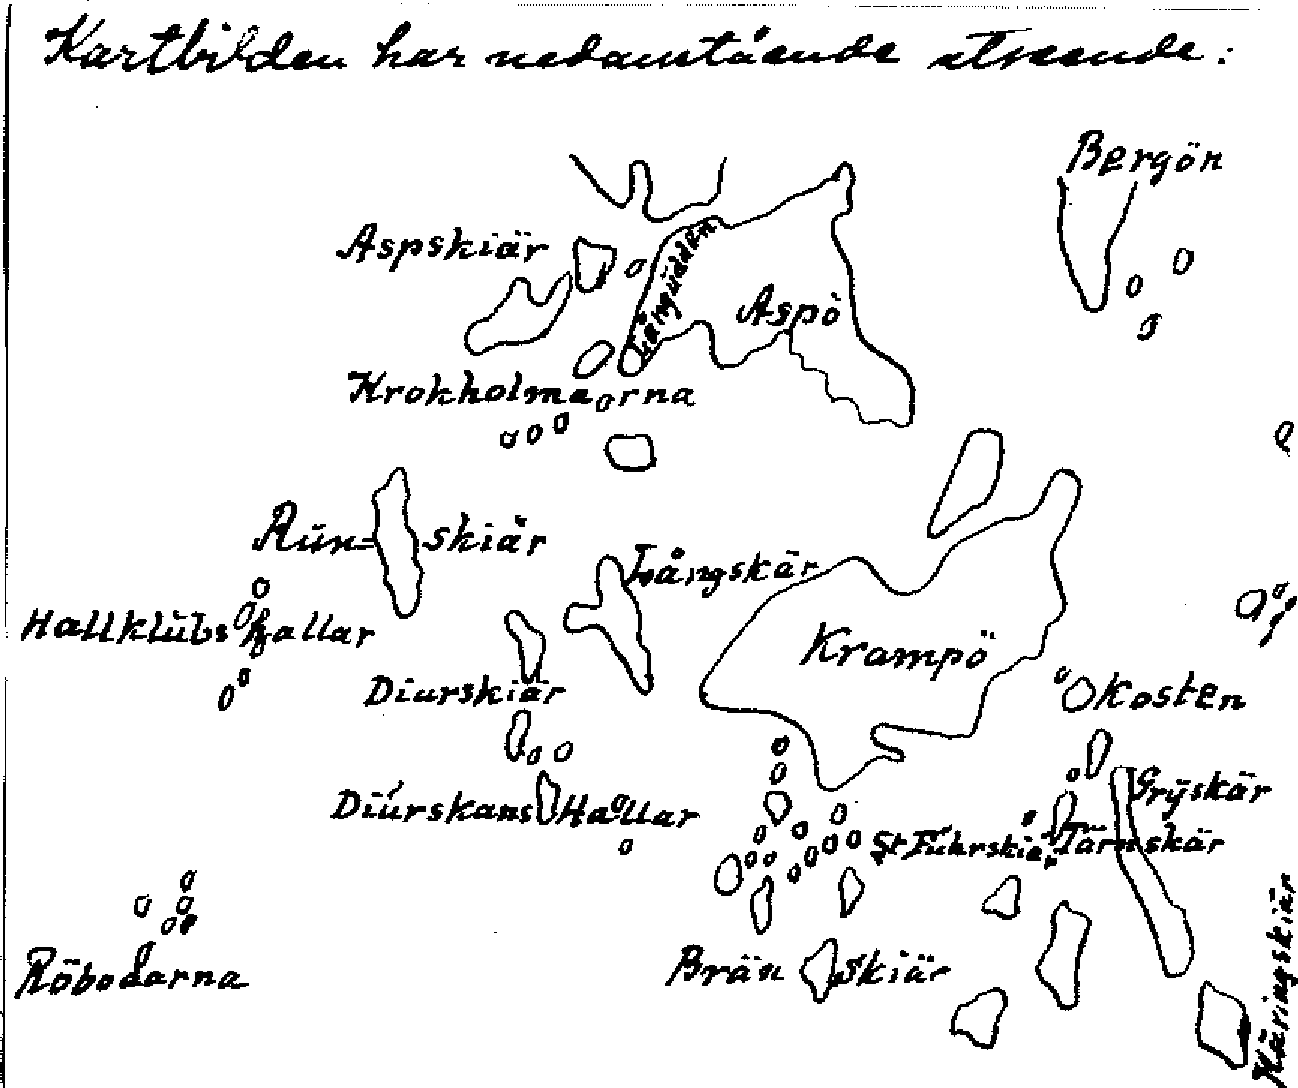 Kartbilden har nedanstående utseende:
Bergön
Aspskiär
Långüdden
Aspö
Krokholmaorna
Rün=skiär
Långskär
Hallklübshallar
Krampö
Diurskiär
Kosten
Diürskans Hallar
Grÿskär
St Führskiär
Tärnskär
Röbodarna
Brän skiär
Häringskiär